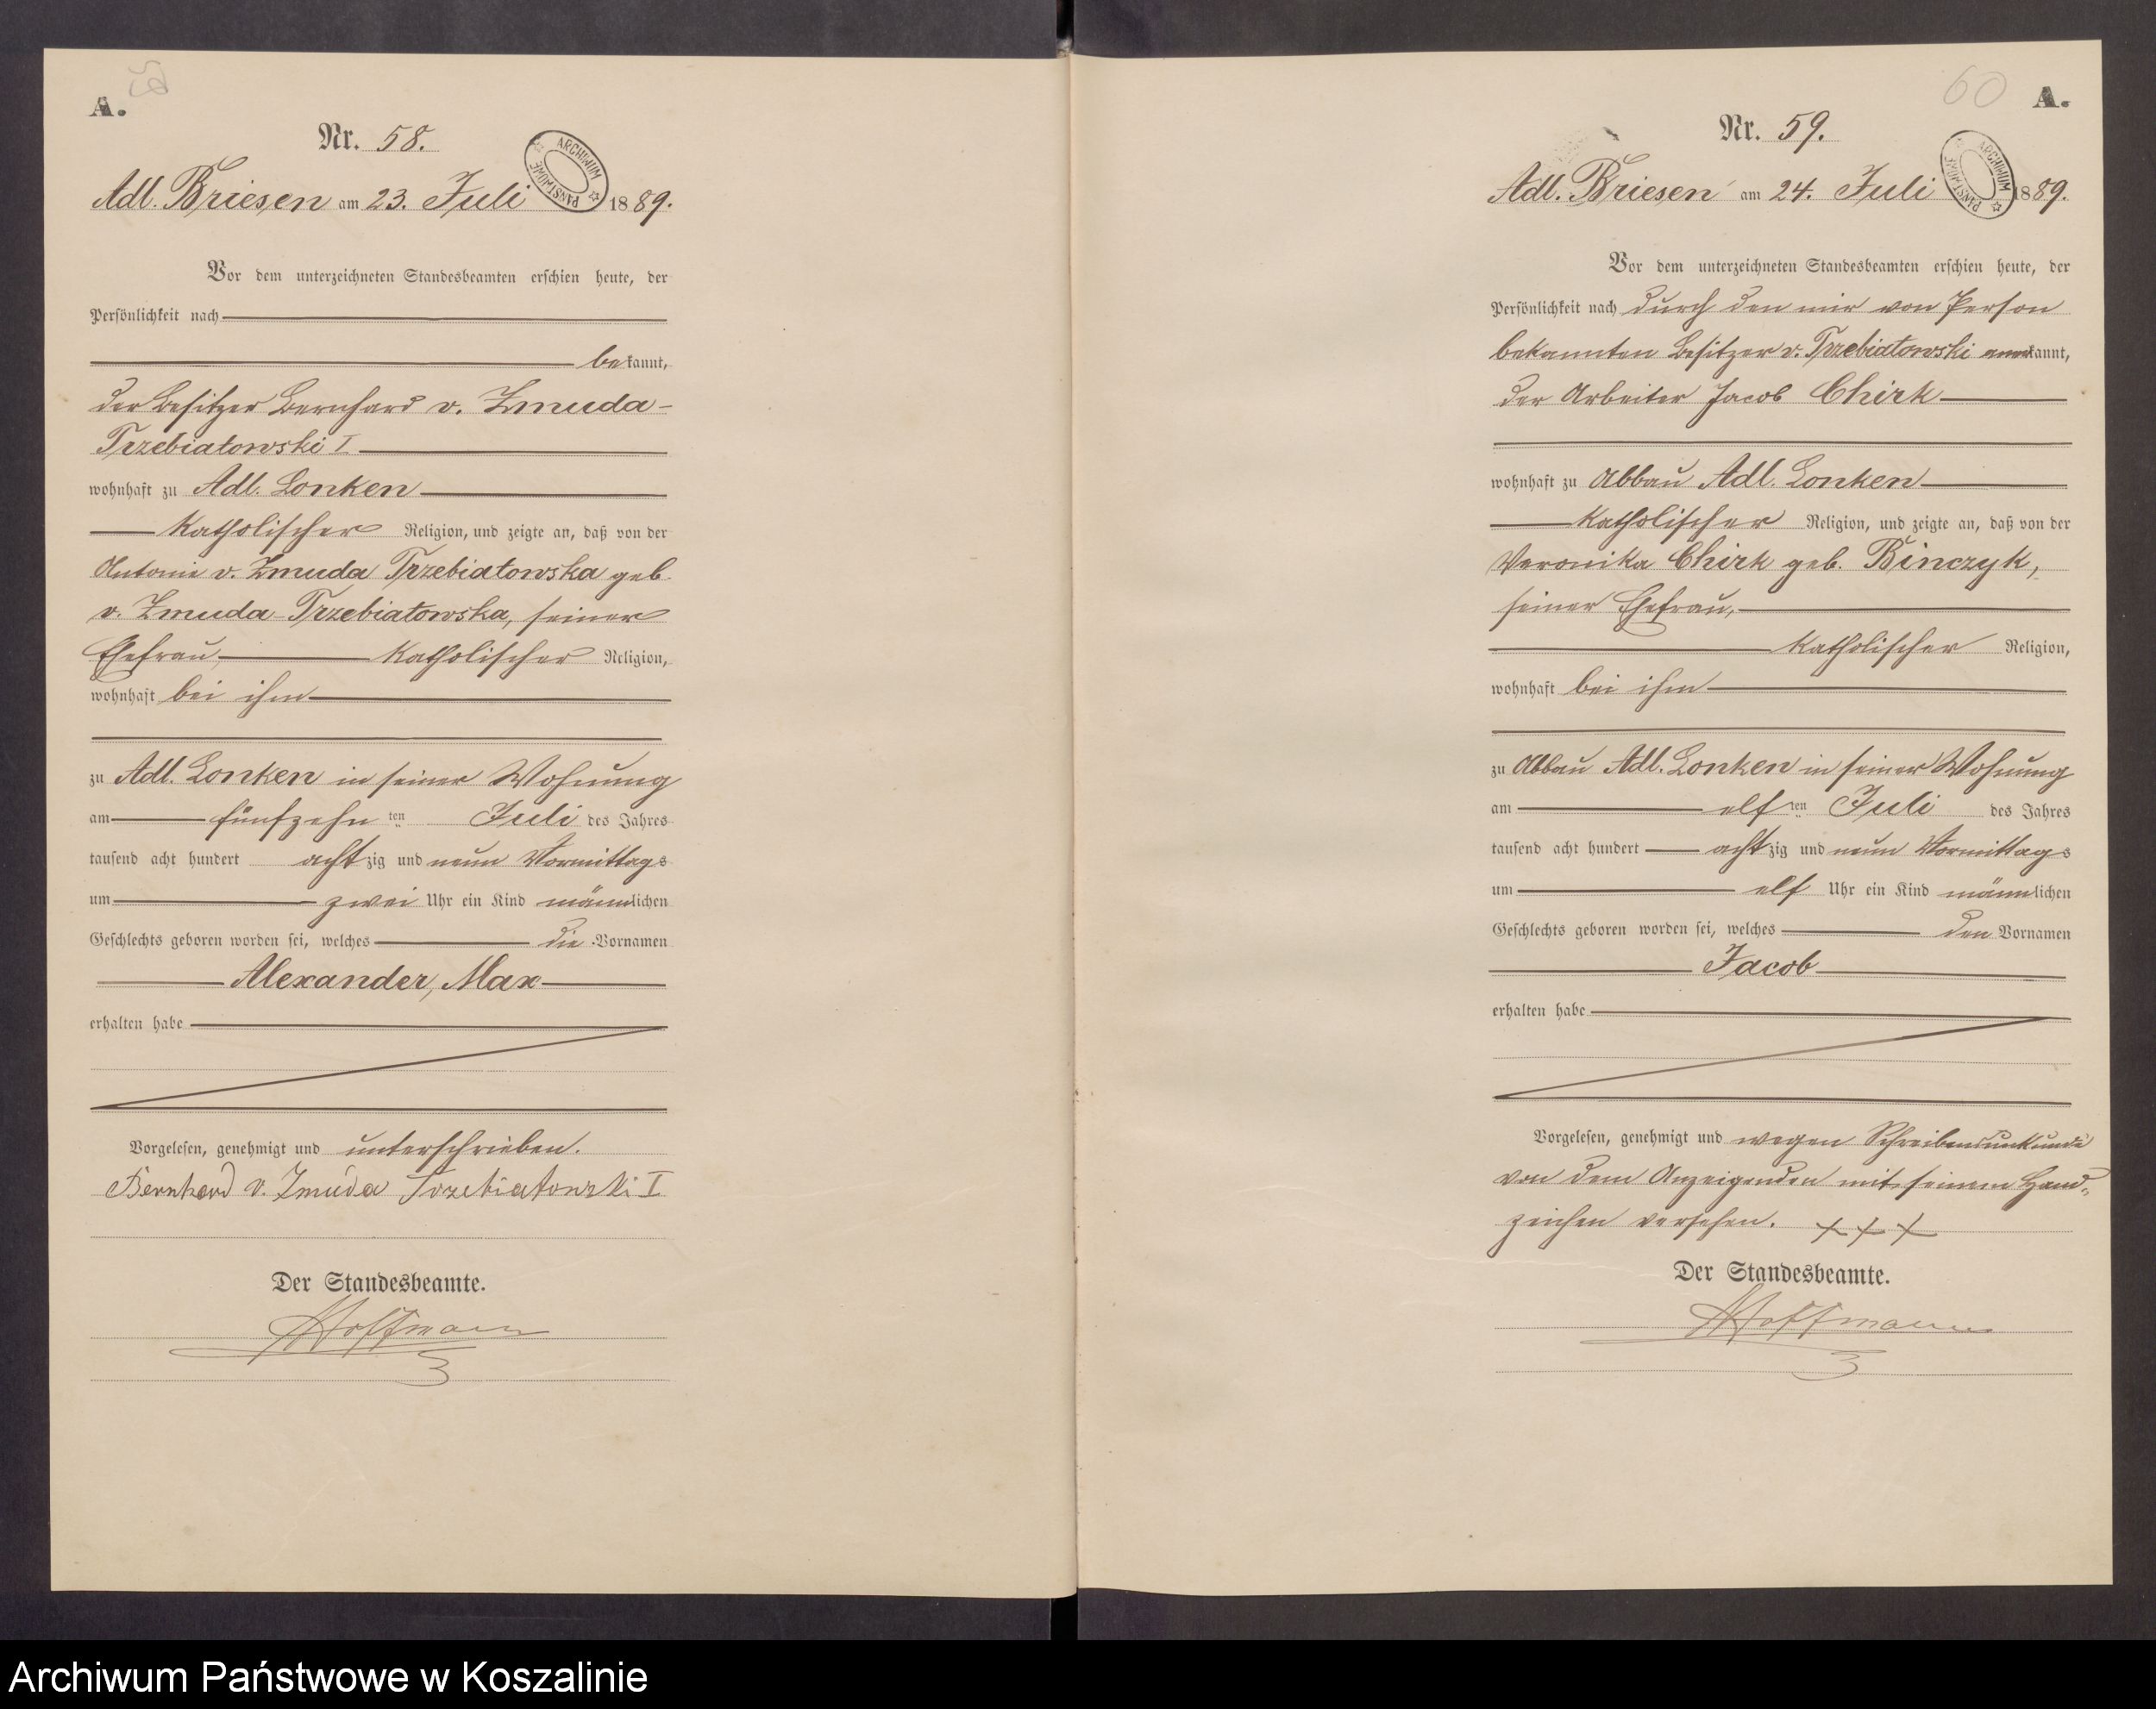 A.
Nr. 58.
ARCHIWUM PAŃSTWOWE
Adl. Briesen am 23. Juli 1889.
Vor dem unterzeichneten Standesbeamten erschien heute, der
Persönlichkeit nach
bekannt,
der Besitzer Bernhard v. Zmuda-
Trzebiatowski I
wohnhaft zu Adl. Lonken
katholischer Religion, und zeigte an, daß von der
Antonie v. Zmuda Trzebiatowska geb.
v. Zmuda-Trzebiatowska, seiner
Ehefrau, katholischer Religion,
wohnhaft bei ihm
zu Adl. Lonken in seiner Wohnung
am fünfzehn ten Juli des Jahres
tausend acht hundert achtzig und neun Vormittags
um zwei Uhr ein Kind männlichen
Geschlechts geboren worden sei, welches die Vornamen
Alexander, Max
erhalten habe
Vorgelesen, genehmigt und unterschrieben.
Bernhard v. Zmuda Trzebiatowski I
Der Standesbeamte.
Hoffmann
60 A.
Nr. 59.
ARCHIWUM PAŃSTWOWE
Adl. Briesen am 24. Juli 1889.
Vor dem unterzeichneten Standesbeamten erschien heute, der
Persönlichkeit nach durch den mir von Person
bekannten Besitzer v. Trzebiatowski anerkannt,
der Arbeiter Jacob Chirk
wohnhaft zu Abbau Adl. Lonken
katholischer Religion, und zeigte an, daß von der
Veronika Chirk geb. Binczyk,
seiner Ehefrau,
katholischer Religion,
wohnhaft bei ihm
zu Abbau Adl. Lonken in seiner Wohnung
am elf ten Juli des Jahres
tausend acht hundert achtzig und neun Vormittags
um elf Uhr ein Kind männlichen
Geschlechts geboren worden sei, welches den Vornamen
Jacob
erhalten habe
Vorgelesen, genehmigt und wegen Schreibensunkunde
von dem Anzeigenden mit seinem Hand-
zeichen versehen. +++
Der Standesbeamte.
Hoffmann
Archiwum Państwowe w Koszalinie